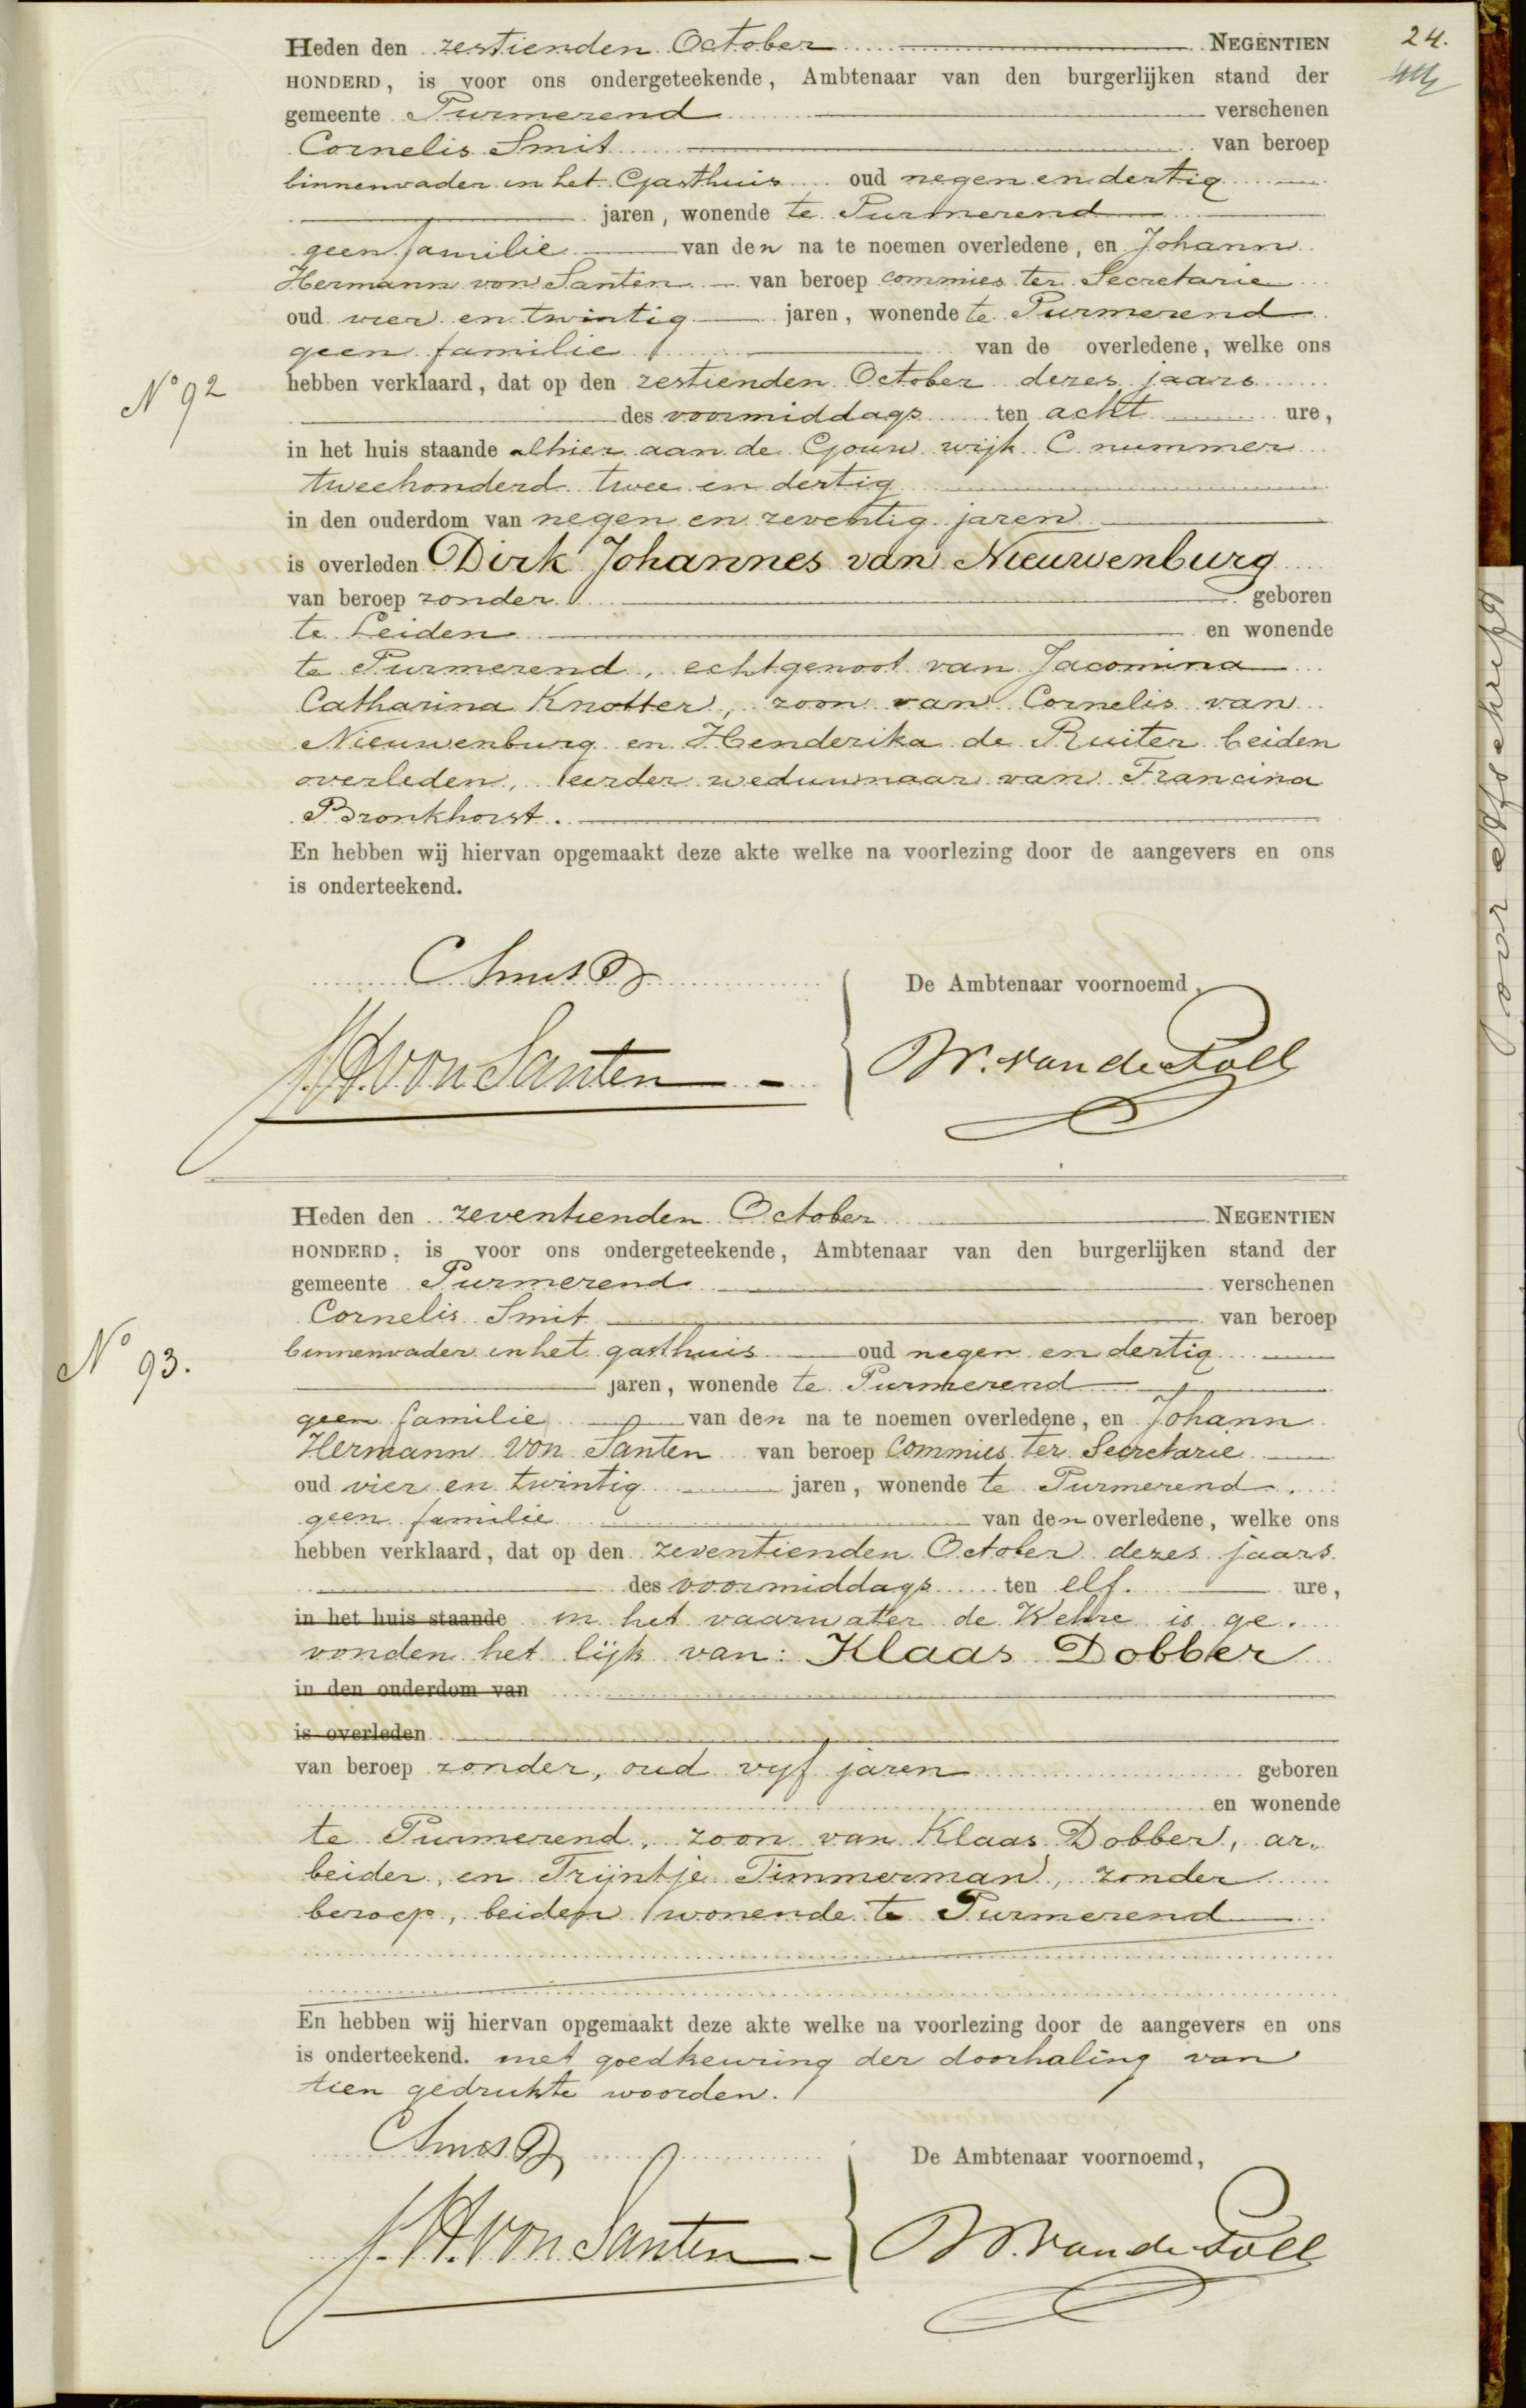 24.
Heden den zestienden October NEGENTIEN
HONDERD, is voor ons ondergeteekende, Ambtenaar van den burgerlijken stand der
gemeente Purmerend verschenen
Cornelis Smit van beroep
binnenvader in het Gasthuis oud negen en dertig
jaren, wonende te Purmerend
geen familie van den na te noemen overledene, en Johann
Hermann von Santen van beroep commies ter Secretarie
oud vier en twintig jaren, wonende te Purmerend
geen familie van de overledene, welke ons
No 92
hebben verklaard, dat op den zestienden October dezes jaars
des voormiddags ten acht ure,
in het huis staande alhier aan de Gouw wijk C nummer
tweehonderd twee en dertig
in den ouderdom van negen en zeventig jaren
is overleden Dirk Johannes van Nieuwenburg
van beroep zonder geboren
te Leiden en wonende
te Purmerend, echtgenoot van Jacomina
Catharina Knotter, zoon van Cornelis van
Nieuwenburg en Henderika de Ruiter beiden
overleden, eerder weduwnaar van Francina
Bronkhorst.
En hebben wij hiervan opgemaakt deze akte welke na voorlezing door de aangevers en ons
is onderteekend.
C Smit
De Ambtenaar voornoemd,
J.H. von Santen
W. van de Poll
Heden den zeventienden October NEGENTIEN
HONDERD, is voor ons ondergeteekende, Ambtenaar van den burgerlijken stand der
gemeente Purmerend verschenen
Cornelis Smit van beroep
No 93.
binnenvader in het gasthuis oud negen en dertig
jaren, wonende te Purmerend
geen familie van den na te noemen overledene, en Johann
Hermann von Santen van beroep Commies ter Secretarie
oud vier en twintig jaren, wonende te Purmerend.
geen familie van den overledene, welke ons
hebben verklaard, dat op den zeventienden October dezes jaars
des voormiddags ten elf. ure,
in het huis staande in het vaarwater de Wehre is ge-
vonden het lijk van: Klaas Dobber
in den ouderdom van
is overleden
van beroep zonder, oud vijf jaren geboren
en wonende
te Purmerend, zoon van Klaas Dobber, ar-
beider, en Trijntje Timmerman, zonder
beroep, beiden wonende te Purmerend
En hebben wij hiervan opgemaakt deze akte welke na voorlezing door de aangevers en ons
is onderteekend. met goedkeuring der doorhaling van
tien gedrukte woorden.
C Smit
De Ambtenaar voornoemd,
J.H. von Santen
W. van de Poll
voor Afschrift